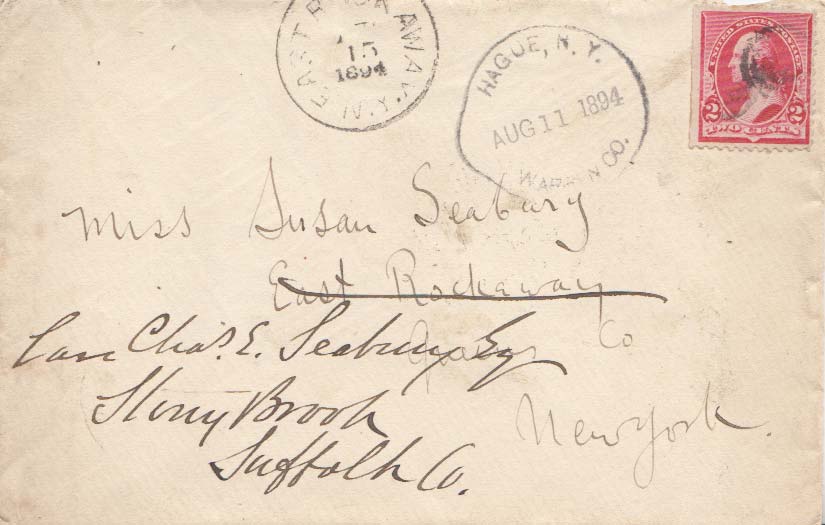 EAST ROCKAWAY, N.Y.
15
1894
HAGUE, N. Y.
AUG 11 1894
WARREN CO.
UNITED STATES POSTAGE
2 2
TWO CENTS
Miss Susan Seabury
East Rockaway
Queens Co
New York.
Care Chas. E. Seabury Esq
Stony Brook
Suffolk Co.